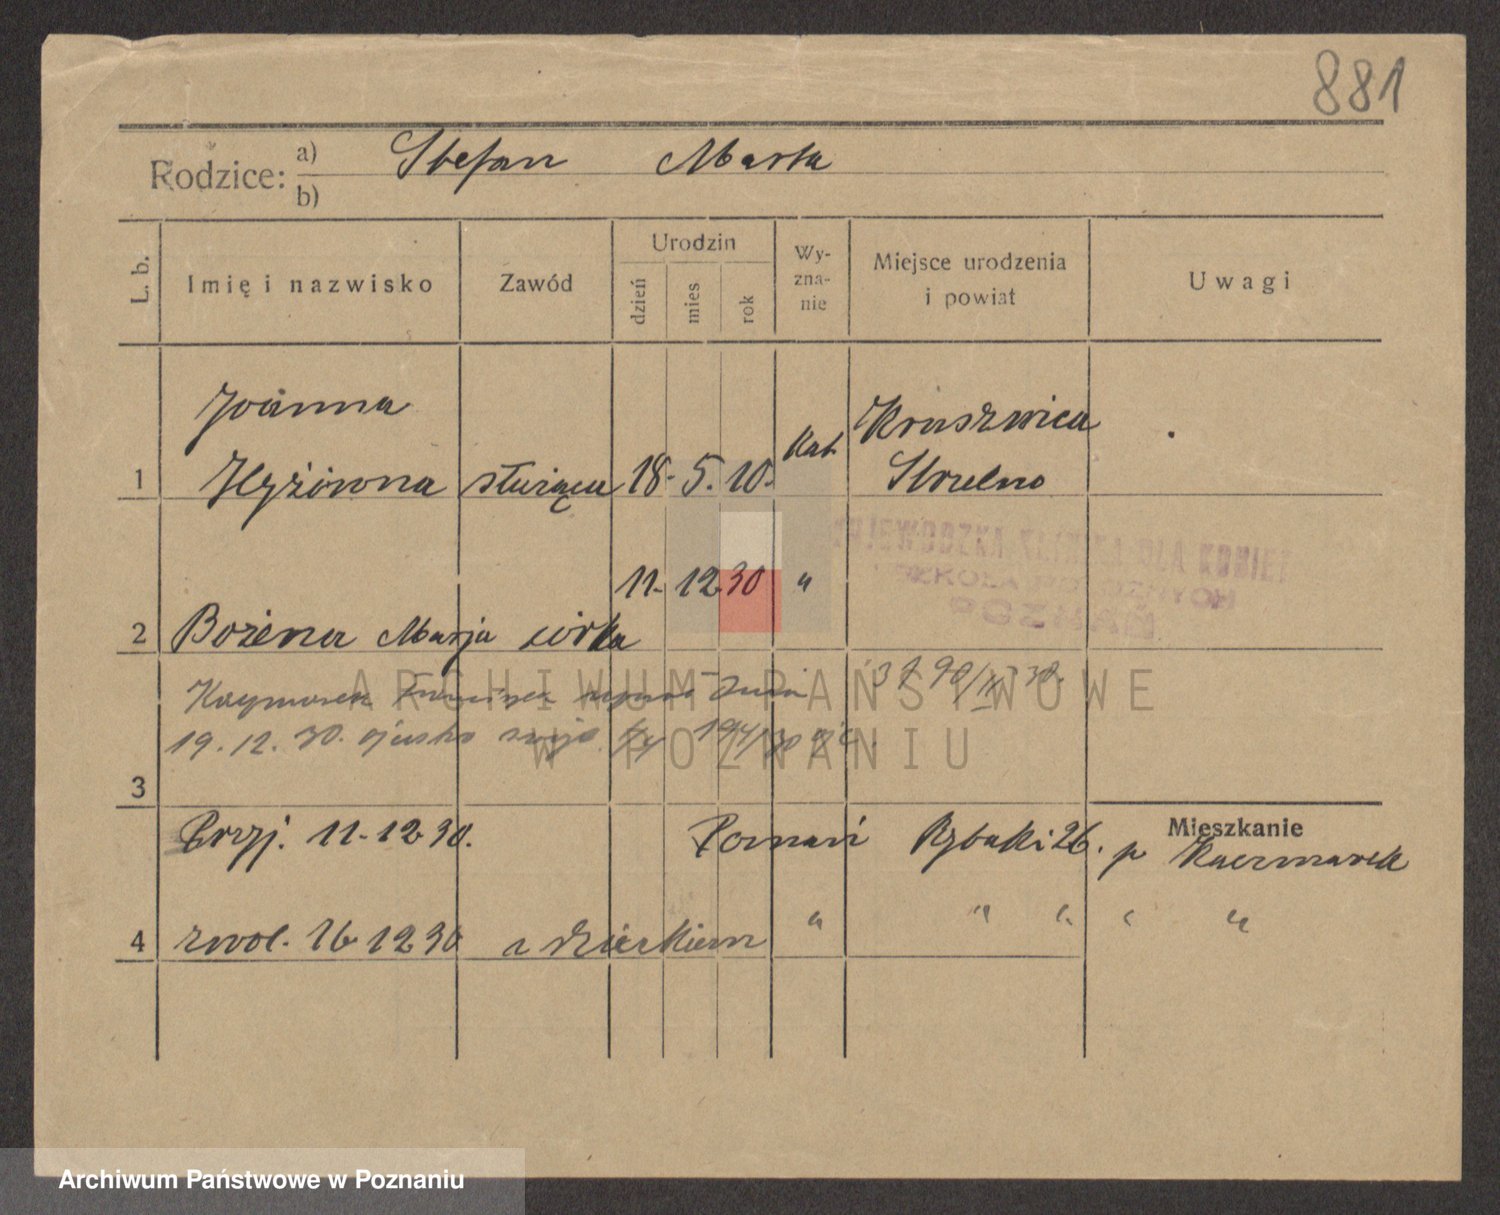 881
Rodzice: a) Stefan Marta
b)
L. b. Imię i nazwisko Zawód Urodzin dzień mies rok Wy-zna-nie Miejsce urodzenia i powiat Uwagi
Joanna Kruszwica
1 Hyżówna służąca 18. 5. 10. kat. Strzelno
WOJEWÓDZKA KLINIKA DLA KOBIET
SZKOŁA POŁOŻNYCH
POZNAŃ
11. 12 30 "
2 Bożena Marja córka
19. 12. 30.
3
Przyj. 11. 12 30. Poznań Rybaki 26. p Kaczmarek
Mieszkanie
4 zwol. 16 12 30 z dzieckiem " " " " "
ARCHIWUM PAŃSTWOWE
W POZNANIU
Archiwum Państwowe w Poznaniu